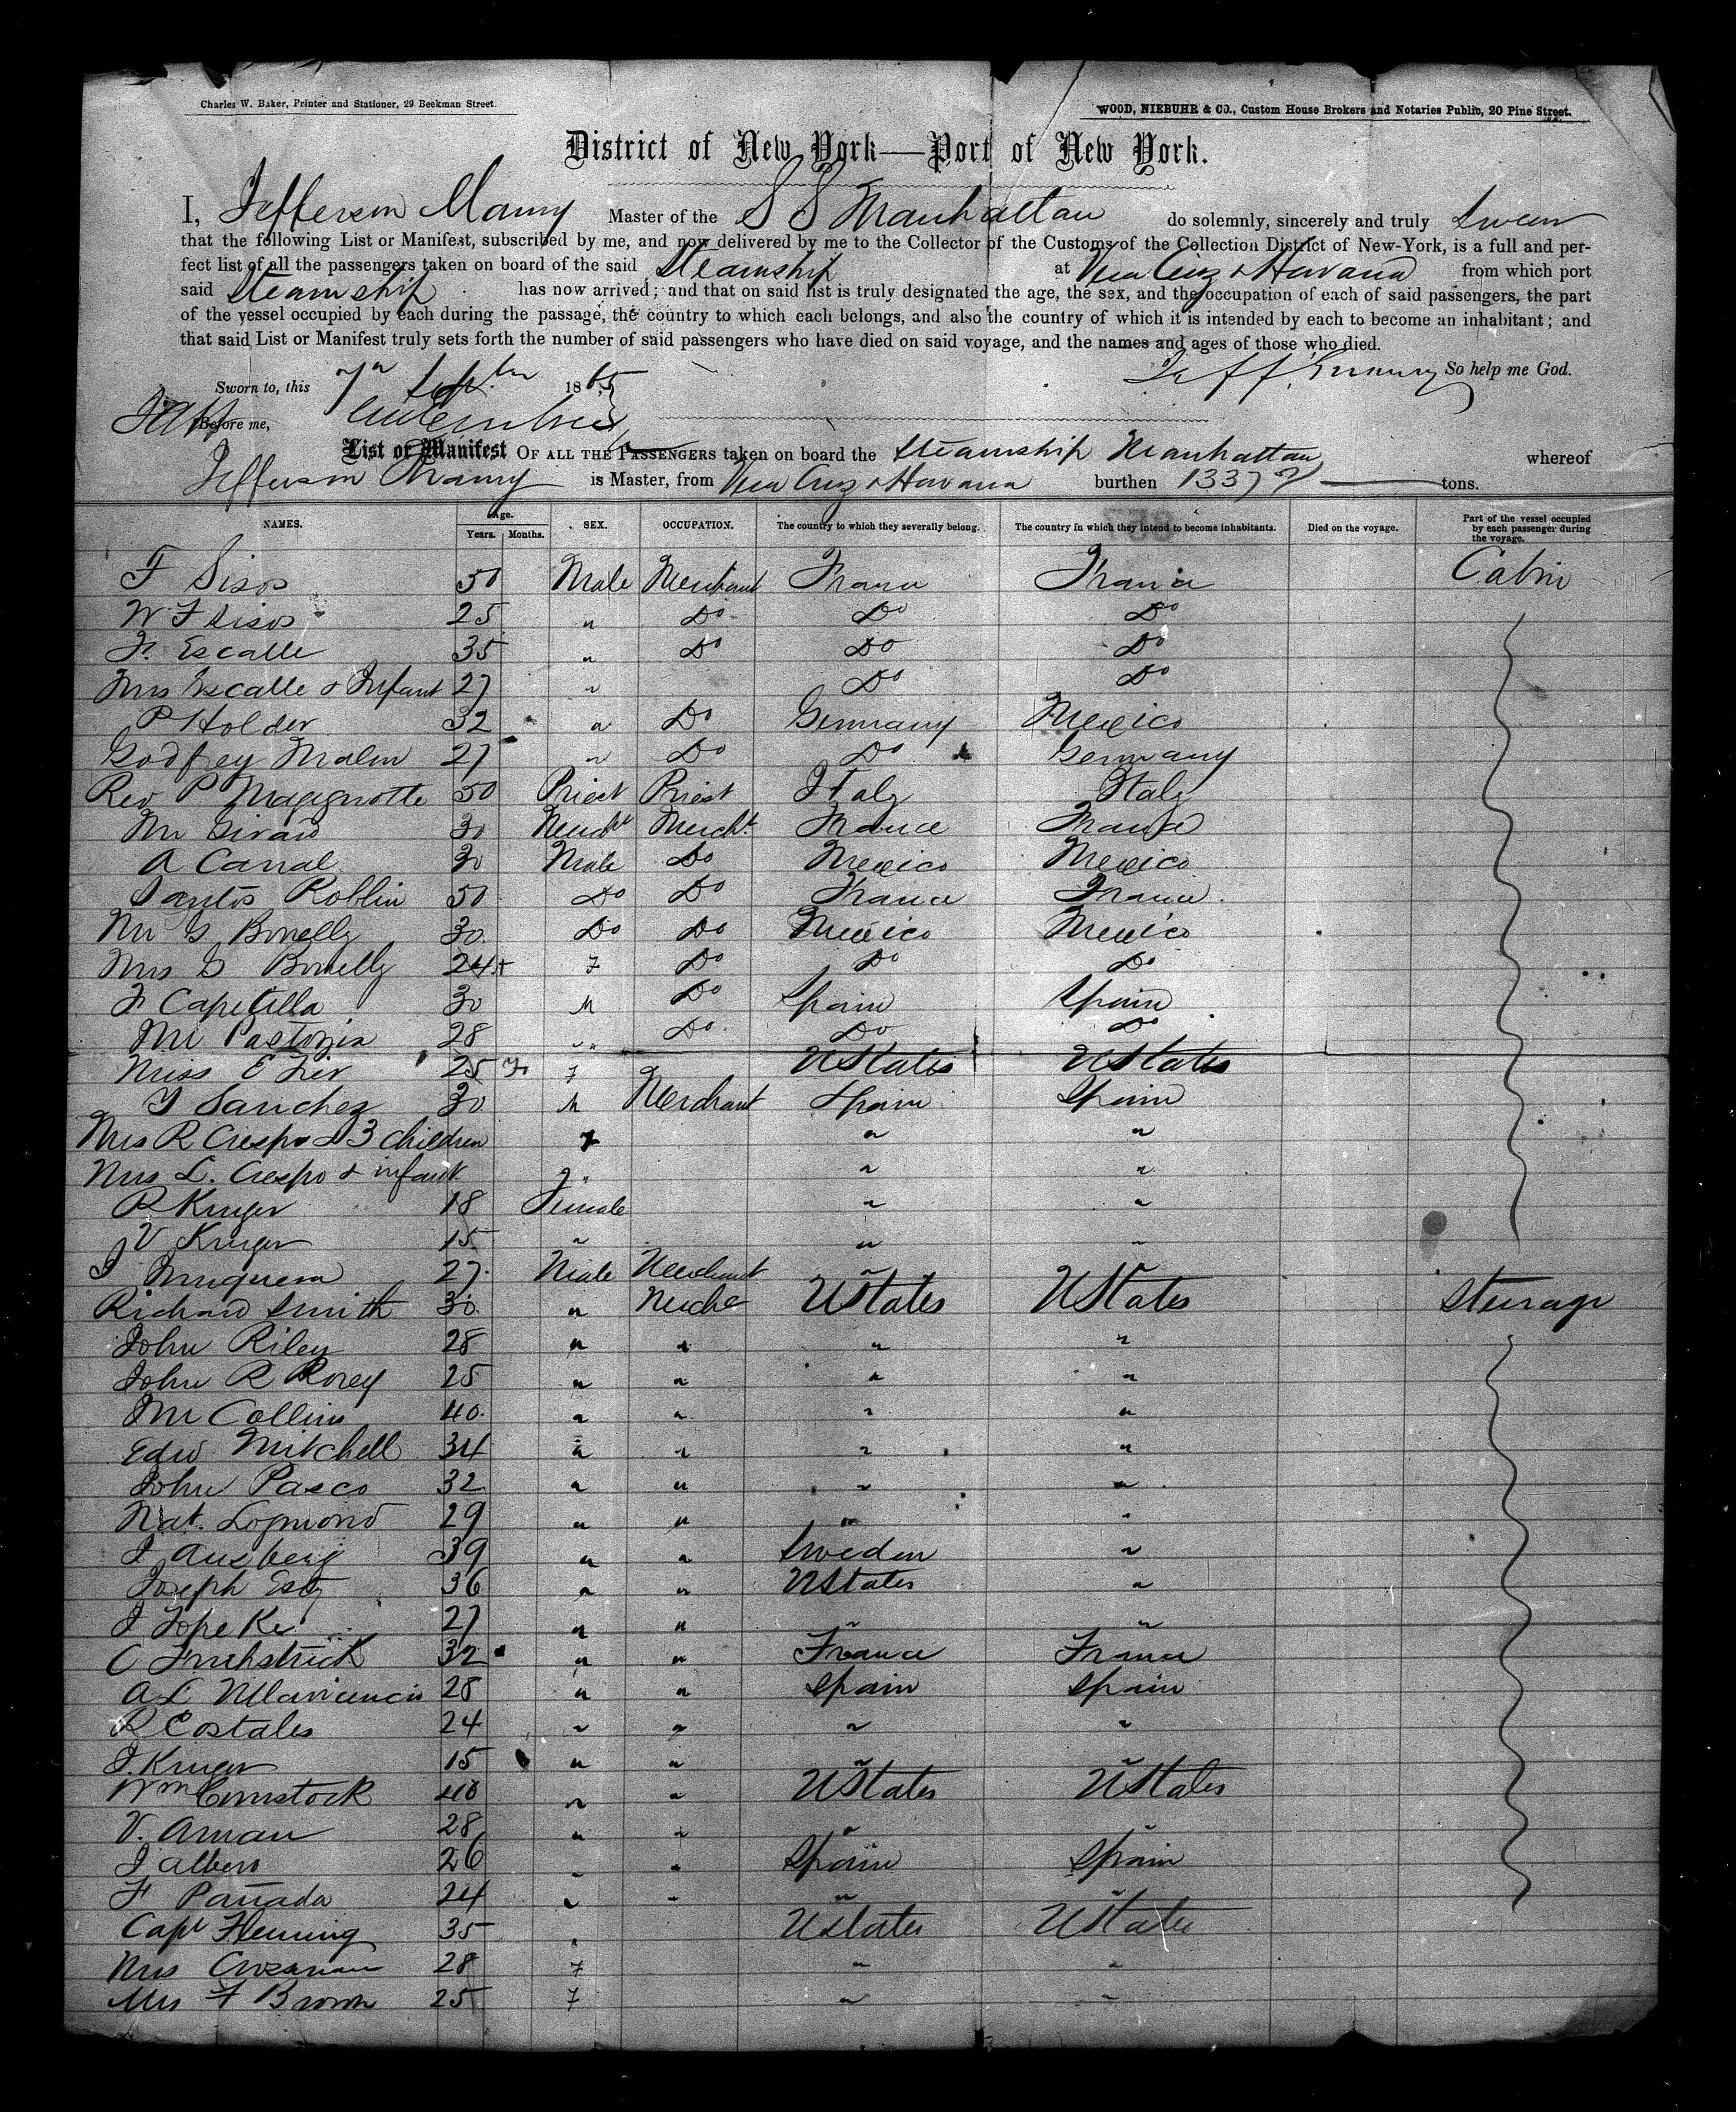 Charles W. Baker, Printer and Stationer, 29 Beekman Street.
WOOD, NIEBUHR & CO., Custom House Brokers and Notaries Public, 20 Pine Street.
District of New York—Port of New York.
I, Jefferson Maury Master of the S S Manhattan do solemnly, sincerely and truly swear
that the following List or Manifest, subscribed by me, and now delivered by me to the Collector of the Customs of the Collection District of New-York, is a full and per-
fect list of all the passengers taken on board of the said Steamship at Vera Cruz & Havana from which port
said Steamship has now arrived; and that on said list is truly designated the age, the sex, and the occupation of each of said passengers, the part
of the vessel occupied by each during the passage, the country to which each belongs, and also the country of which it is intended by each to become an inhabitant; and
that said List or Manifest truly sets forth the number of said passengers who have died on said voyage, and the names and ages of those who died.
Jeff. Maury So help me God.
Sworn to, this 7th Sept 1865
Before me,
List or Manifest OF ALL THE PASSENGERS taken on board the Steamship Manhattan whereof
Jefferson Maury is Master, from Vera Cruz & Havana burthen 1337 tons.
NAMES. Age. Years. Months. SEX. OCCUPATION. The country to which they severally belong. The country in which they intend to become inhabitants. Died on the voyage. Part of the vessel occupied by each passenger during the voyage.
F Sisos 50 Male Merchant France France Cabin
W F Sisos 25 " Do Do Do
F. Escalle 35 " Do Do Do
Mrs Escalle & Infant 27 " Do Do
P Holder 32 " Do Germany Mexico
Godfrey Malm 27 " Do Do Germany
Rev P 50 Priest Priest Italy Italy
Mr Girard 30 Mercht Mercht France France
A Canal 30 Male Do Mexico Mexico
Santos Roblin 50 Do Do France France
Mr G Bonelly 30 Do Do Mexico Mexico
Mrs G Bonelly 24 F Do Do Do
F Capetilla 30 M Do Spain Spain
Mr 28 " Do Do Do
Miss E 25 F UStates UStates
Y Sanchez 30 M Merchant Spain Spain
Mrs R Crespo & 3 children F " "
Mrs L. Crespo & infant " " "
R Kruger 18 Female " "
V Kruger 15 " " "
J 27 Male Merchant " "
Richard Smith 30 " Merch UStates UStates Steerage
John Riley 28 " " " "
John R Rorey 25 " " " "
Mr Collins 40 " " " "
Edw Mitchell 34 " " " "
John Pasco 32 " " " "
Nat. 29 " " " "
J Ausberg 39 " " Sweden "
Joseph Esty 36 " " UStates "
J 27 " " " "
C 32 " " France France
A L 28 " " Spain Spain
R Costales 24 " " " "
J. Kruger 15 " " " "
Wm Comstock 40 " " UStates UStates
V. Aman 28 " " " "
J Albero 26 " " Spain Spain
F Pañada 24 " " " "
Capt Fleming 35 " UStates UStates
Mrs 28 F " "
Mrs F Brown 25 F " "